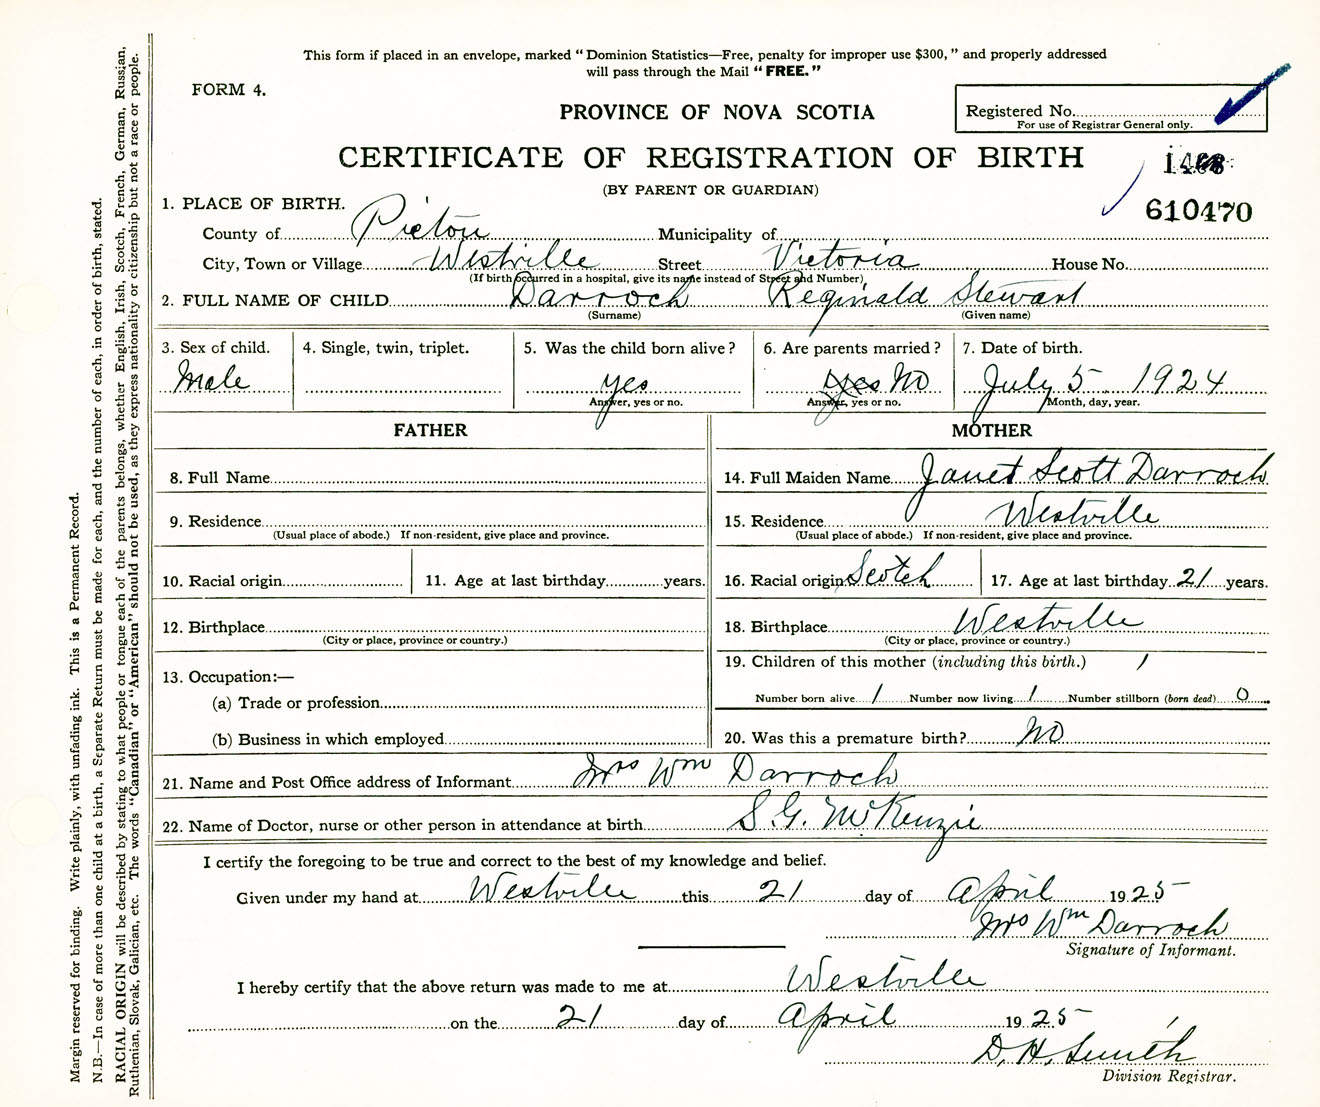 This form if placed in an envelope, marked "Dominion Statistics—Free, penalty for improper use $300," and properly addressed
will pass through the Mail "FREE."
FORM 4.
PROVINCE OF NOVA SCOTIA
Registered No.
For use of Registrar General only.
CERTIFICATE OF REGISTRATION OF BIRTH
(BY PARENT OR GUARDIAN)
610470
1. PLACE OF BIRTH.
County of Pictou Municipality of
City, Town or Village Westville Street Victoria House No.
(If birth occurred in a hospital, give its name instead of Street and Number)
2. FULL NAME OF CHILD Darroch Reginald Stewart
(Surname) (Given name)
3. Sex of child. 4. Single, twin, triplet. 5. Was the child born alive? 6. Are parents married? 7. Date of birth.
Male yes Yes No July 5 1924
Answer, yes or no. Answer, yes or no. Month, day, year.
FATHER MOTHER
8. Full Name 14. Full Maiden Name Janet Scott Darroch
9. Residence 15. Residence Westville
(Usual place of abode.) If non-resident, give place and province. (Usual place of abode.) If non-resident, give place and province.
10. Racial origin 11. Age at last birthday years. 16. Racial origin Scotch 17. Age at last birthday 21 years.
12. Birthplace 18. Birthplace Westville
(City or place, province or country.) (City or place, province or country.)
13. Occupation:— 19. Children of this mother (including this birth.) 1
(a) Trade or profession Number born alive 1 Number now living 1 Number stillborn (born dead) 0
(b) Business in which employed 20. Was this a premature birth? No
21. Name and Post Office address of Informant Mrs Wm Darroch
22. Name of Doctor, nurse or other person in attendance at birth S.G. McKenzie
I certify the foregoing to be true and correct to the best of my knowledge and belief.
Given under my hand at Westville this 21 day of April 1925
Mrs Wm Darroch
Signature of Informant.
I hereby certify that the above return was made to me at Westville
on the 21 day of April 1925
D. H. Smith
Division Registrar.
Margin reserved for binding. Write plainly, with unfading ink. This is a Permanent Record.
N.B.—In case of more than one child at a birth, a Separate Return must be made for each, and the number of each, in order of birth, stated.
RACIAL ORIGIN will be described by stating to what people or tongue each of the parents belongs, whether English, Irish, Scotch, French, German, Russian,
Ruthenian, Slovak, Galician, etc. The words "Canadian" or "American" should not be used, as they express nationality or citizenship but not a race or people.